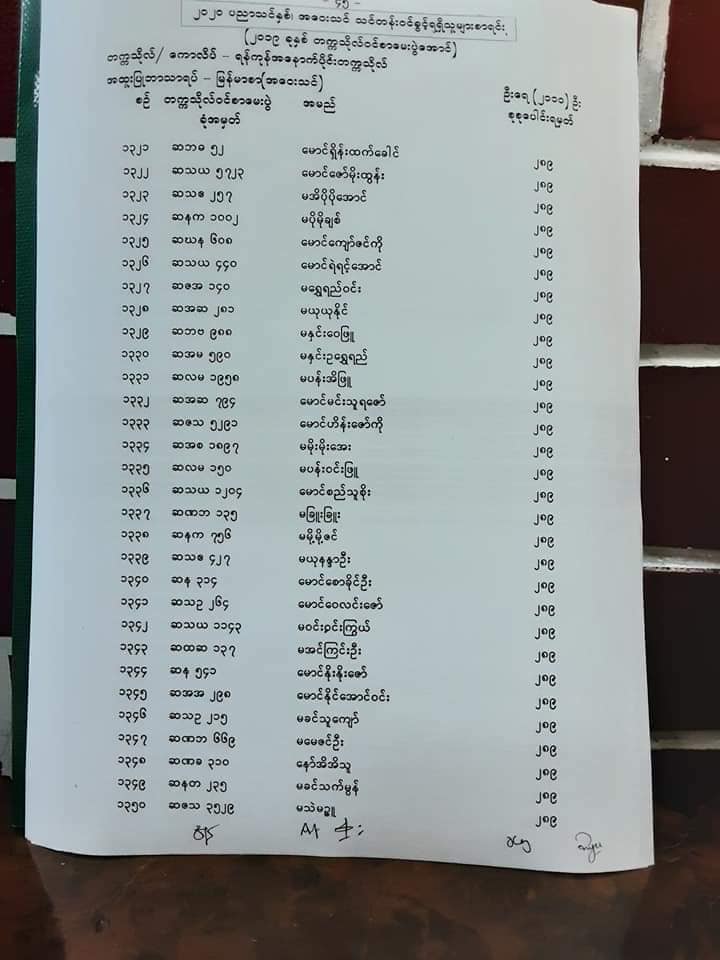 - ၄၅ -
၂၀၂၀ ပညာသင်နှစ်၊ အဝေးသင် သင်တန်းဝင်ခွင့်ရရှိသူများစာရင်း
(၂၀၁၉ ခုနှစ် တက္ကသိုလ်ဝင်စာမေးပွဲအောင်)
တက္ကသိုလ်/ ကောလိပ် - ရန်ကုန်အနောက်ပိုင်းတက္ကသိုလ်
အထူးပြုဘာသာရပ် - မြန်မာစာ(အဝေးသင်) ဦးရေ (၂၁၀၀) ဦး
စဉ် တက္ကသိုလ်ဝင်စာမေးပွဲ အမည် စုစုပေါင်းရမှတ်
ခုံအမှတ်
၁၃၂၁ ဆဘဓ ၅၂ မောင်ရှိန်းထက်ခေါင် ၂၈၉
၁၃၂၂ ဆသယ ၅၇၂၃ မောင်ဇော်မိုးထွန်း ၂၈၉
၁၃၂၃ ဆသဧ ၂၅၇ မအိပိုပိုအောင် ၂၈၉
၁၃၂၄ ဆနက ၁၀၀၂ မပိုမိုချစ် ၂၈၉
၁၃၂၅ ဆဃန ၆၀၈ မောင်ကျော်ဇင်ကို ၂၈၉
၁၃၂၆ ဆသယ ၄၄၀ မောင်ရဲရင့်အောင် ၂၈၉
၁၃၂၇ ဆဇအ ၁၄၀ မရွှေရည်ဝင်း ၂၈၉
၁၃၂၈ ဆအဆ ၂၈၁ မယုယုနိုင် ၂၈၉
၁၃၂၉ ဆဘဗ ၉၈၈ မနှင်းဝေဖြူ ၂၈၉
၁၃၃၀ ဆအမ ၅၉၀ မနှင်းဥရွှေရည် ၂၈၉
၁၃၃၁ ဆလမ ၁၉၅၈ မပန်းအိဖြူ ၂၈၉
၁၃၃၂ ဆအဆ ၇၉၄ မောင်မင်းသူရဇော် ၂၈၉
၁၃၃၃ ဆဇသ ၅၂၉၁ မောင်ဟိန်းဇော်ကို ၂၈၉
၁၃၃၄ ဆအစ ၁၈၉၇ မမိုးမိုးအေး ၂၈၉
၁၃၃၅ ဆလမ ၁၅၀ မပန်းဝင်းဖြူ ၂၈၉
၁၃၃၆ ဆသယ ၁၂၀၄ မောင်စည်သူစိုး ၂၈၉
၁၃၃၇ ဆဏဘ ၁၃၅ မခြူးခြူး ၂၈၉
၁၃၃၈ ဆနက ၇၅၆ မမို့မို့ဇင် ၂၈၉
၁၃၃၉ ဆသဧ ၄၂၇ မယုနန္ဒာဦး ၂၈၉
၁၃၄၀ ဆန ၃၁၄ မောင်စောခိုင်ဦး ၂၈၉
၁၃၄၁ ဆသဥ ၂၆၄ မောင်ဝေလင်းဇော် ၂၈၉
၁၃၄၂ ဆသယ ၁၁၄၃ မဝင်းဝင်းကြွယ် ၂၈၉
၁၃၄၃ ဆထဆ ၁၃၇ မအင်ကြင်းဦး ၂၈၉
၁၃၄၄ ဆန ၅၄၁ မောင်နိုးနိုးဇော် ၂၈၉
၁၃၄၅ ဆအအ ၂၉၈ မောင်နိုင်အောင်ဝင်း ၂၈၉
၁၃၄၆ ဆသဥ ၂၁၅ မခင်သူကျော် ၂၈၉
၁၃၄၇ ဆဏဘ ၆၆၉ မမေဇင်ဦး ၂၈၉
၁၃၄၈ ဆဏခ ၃၁၀ နော်အိအိသူ ၂၈၉
၁၃၄၉ ဆနတ ၂၃၅ မခင်သက်မွန် ၂၈၉
၁၃၅၀ ဆဇသ ၃၅၂၉ မသဲမဥ္ဇူ ၂၈၉